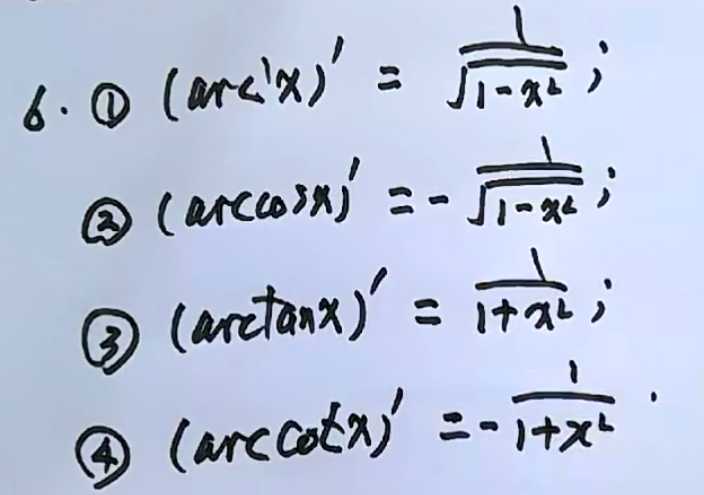 6. ① (arc'x)' = 1/√(1-x²) ;
② (arccosx)' = - 1/√(1-x²) ;
③ (arctanx)' = 1/(1+x²) ;
④ (arccotx)' = - 1/(1+x²) .